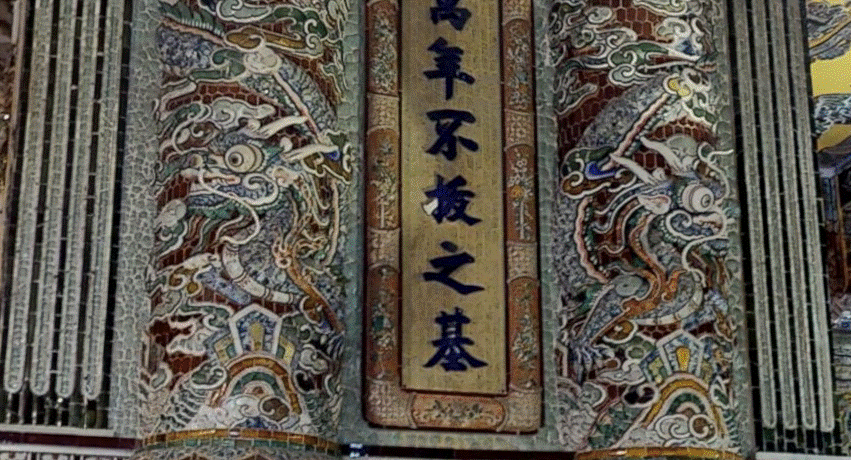 萬年不拔之基